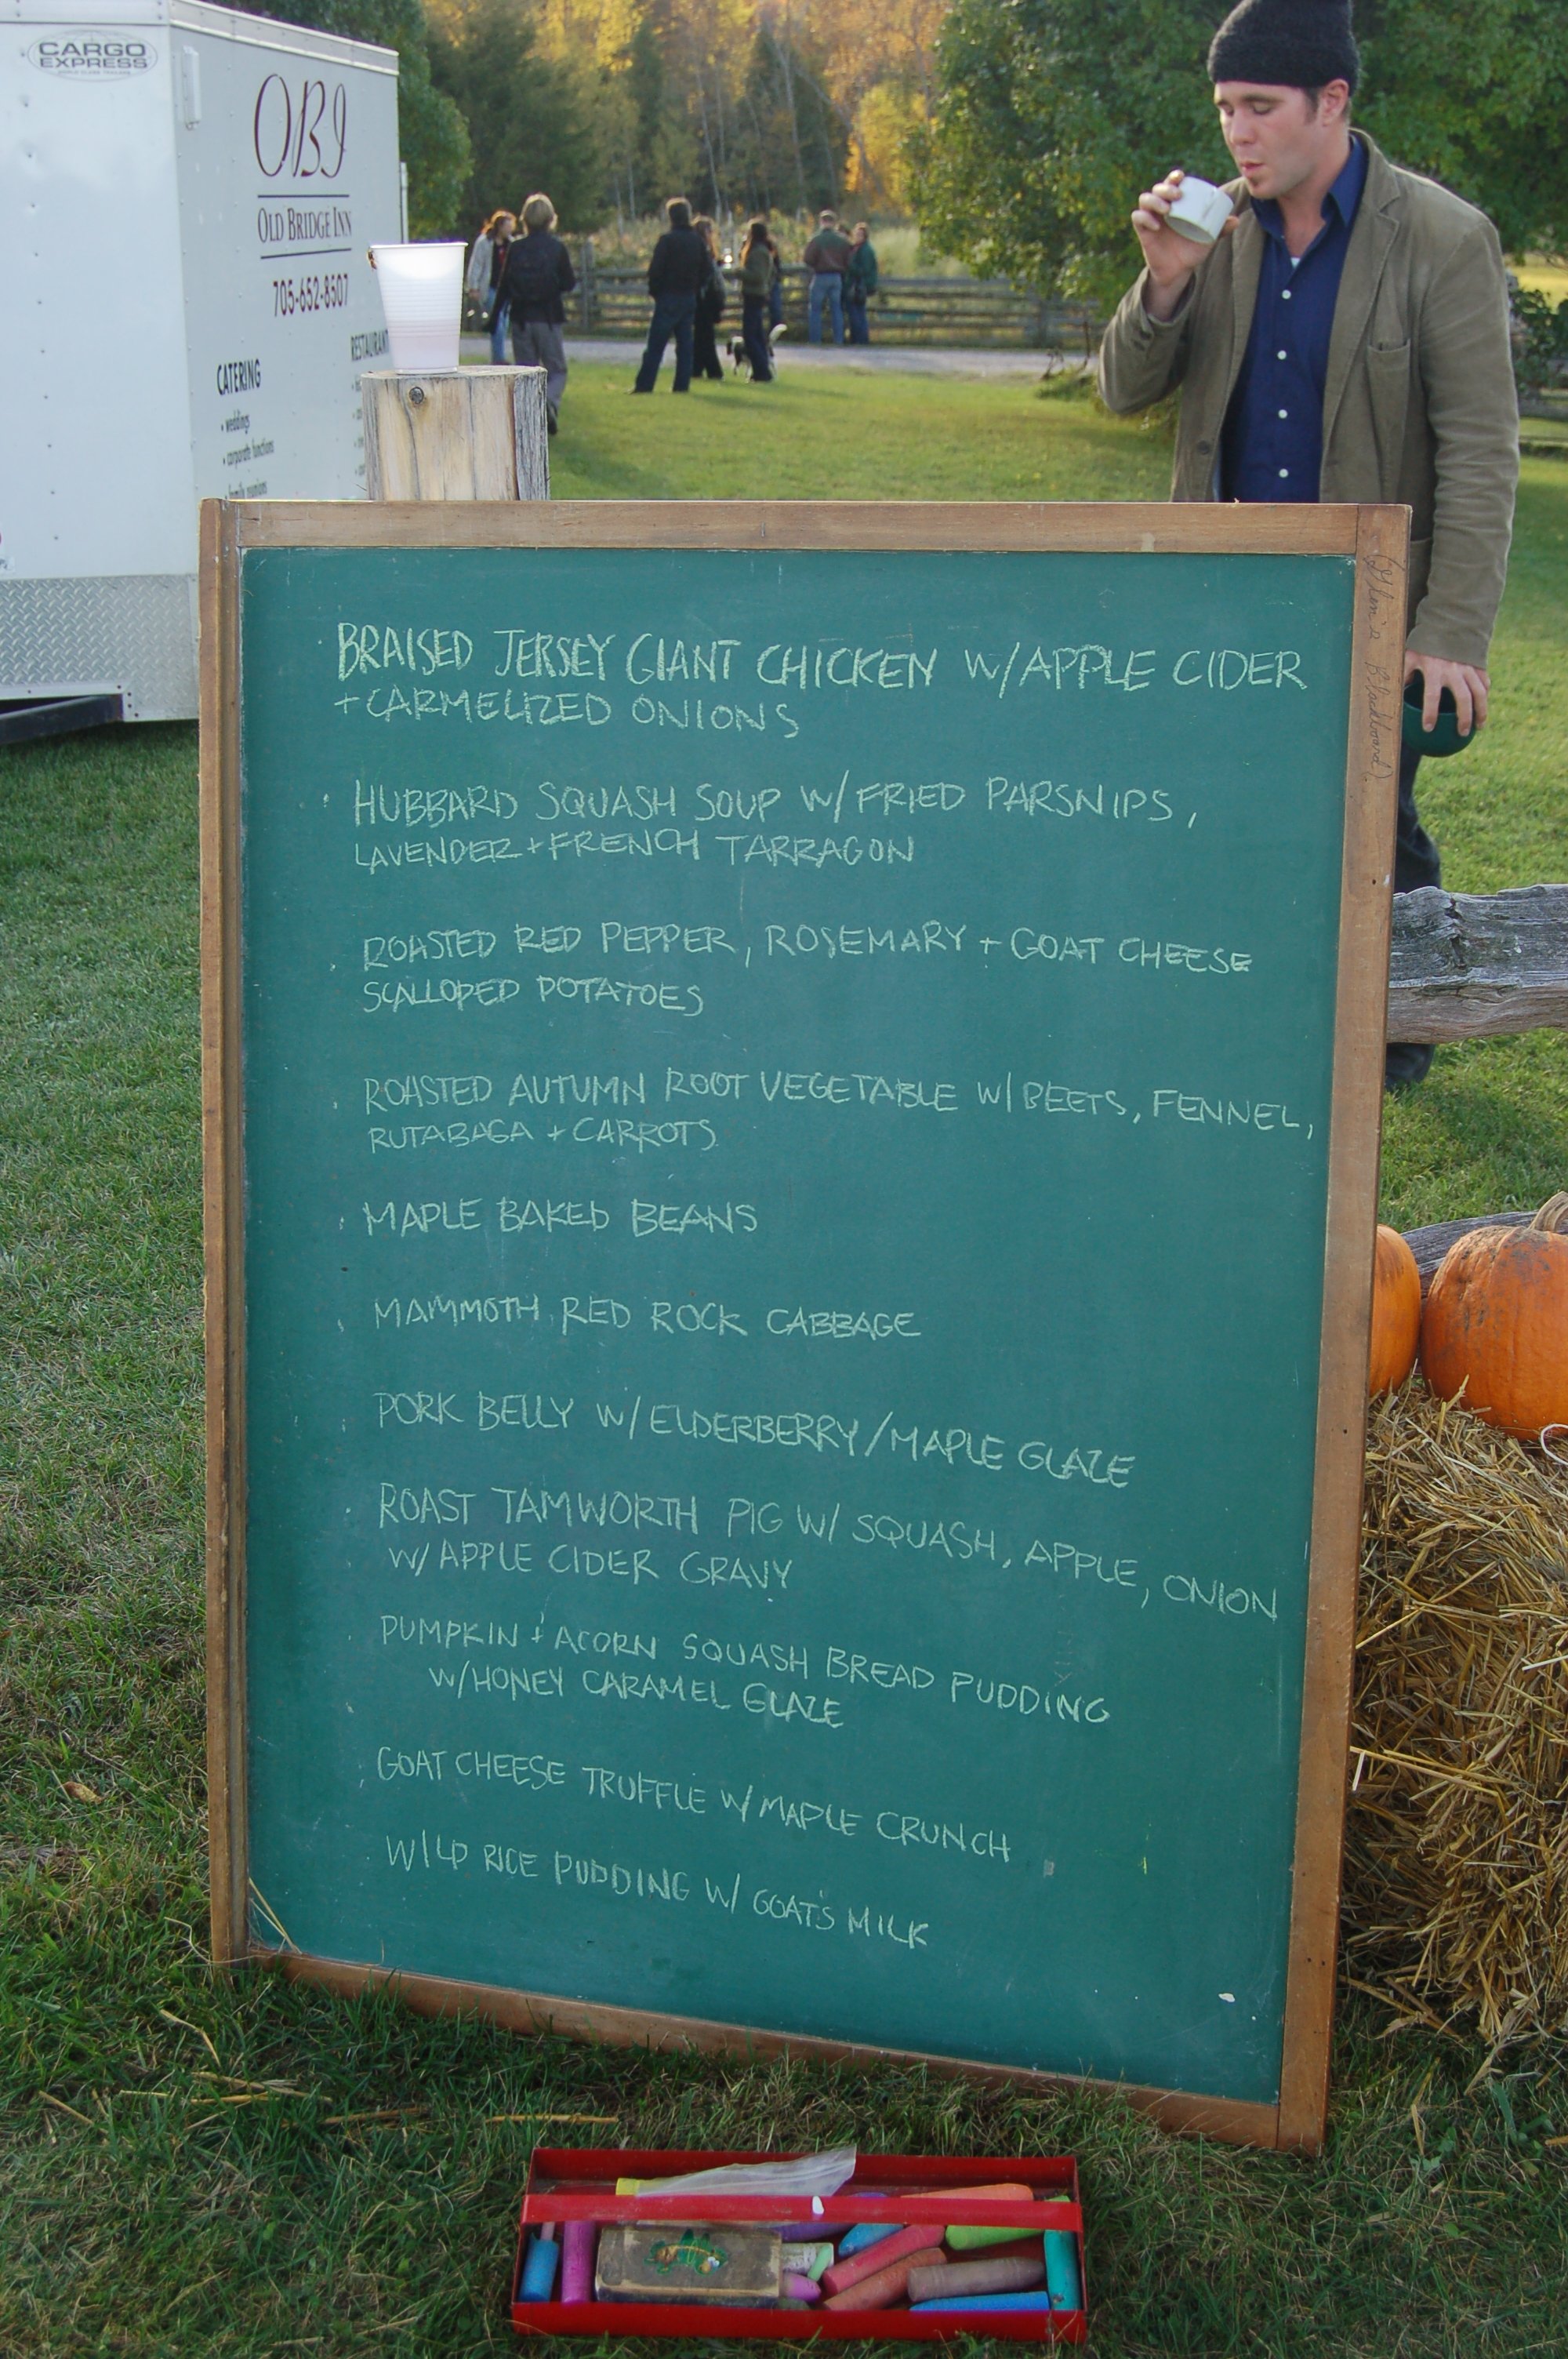 CARGO
EXPRESS
OBI
OLD BRIDGE INN
705-652-8507
CATERING
• weddings
• corporate functions
• family reunions
RESTAURANT
BRAISED JERSEY GIANT CHICKEN W/APPLE CIDER
+CARMELIZED ONIONS
HUBBARD SQUASH SOUP W/FRIED PARSNIPS,
LAVENDER+FRENCH TARRAGON
ROASTED RED PEPPER, ROSEMARY + GOAT CHEESE
SCALLOPED POTATOES
ROASTED AUTUMN ROOT VEGETABLE W/BEETS, FENNEL,
RUTABAGA + CARROTS
MAPLE BAKED BEANS
MAMMOTH RED ROCK CABBAGE
PORK BELLY W/ELDERBERRY/MAPLE GLAZE
ROAST TAMWORTH PIG W/ SQUASH, APPLE, ONION
W/APPLE CIDER GRAVY
PUMPKIN + ACORN SQUASH BREAD PUDDING
W/HONEY CARAMEL GLAZE
GOAT CHEESE TRUFFLE W/MAPLE CRUNCH
WILD RICE PUDDING W/ GOAT'S MILK